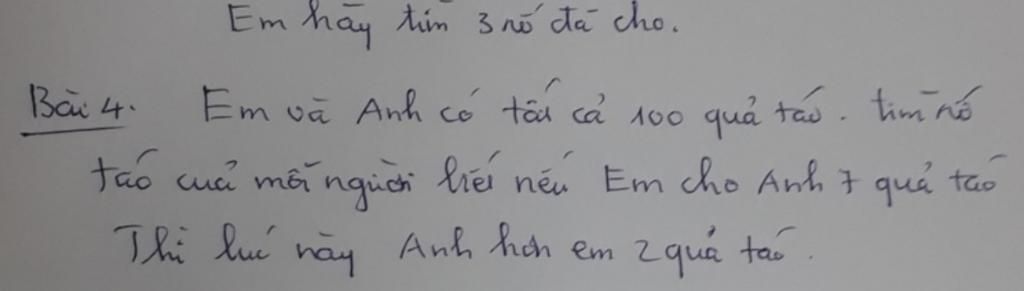 Em hãy tìm 3 số đã cho.
Bài 4. Em và Anh có tất cả 100 quả táo. tìm số
táo cuả mỗi người biết nếu Em cho Anh 7 quả táo
Thì lúc này Anh hơn em 2 quả táo.